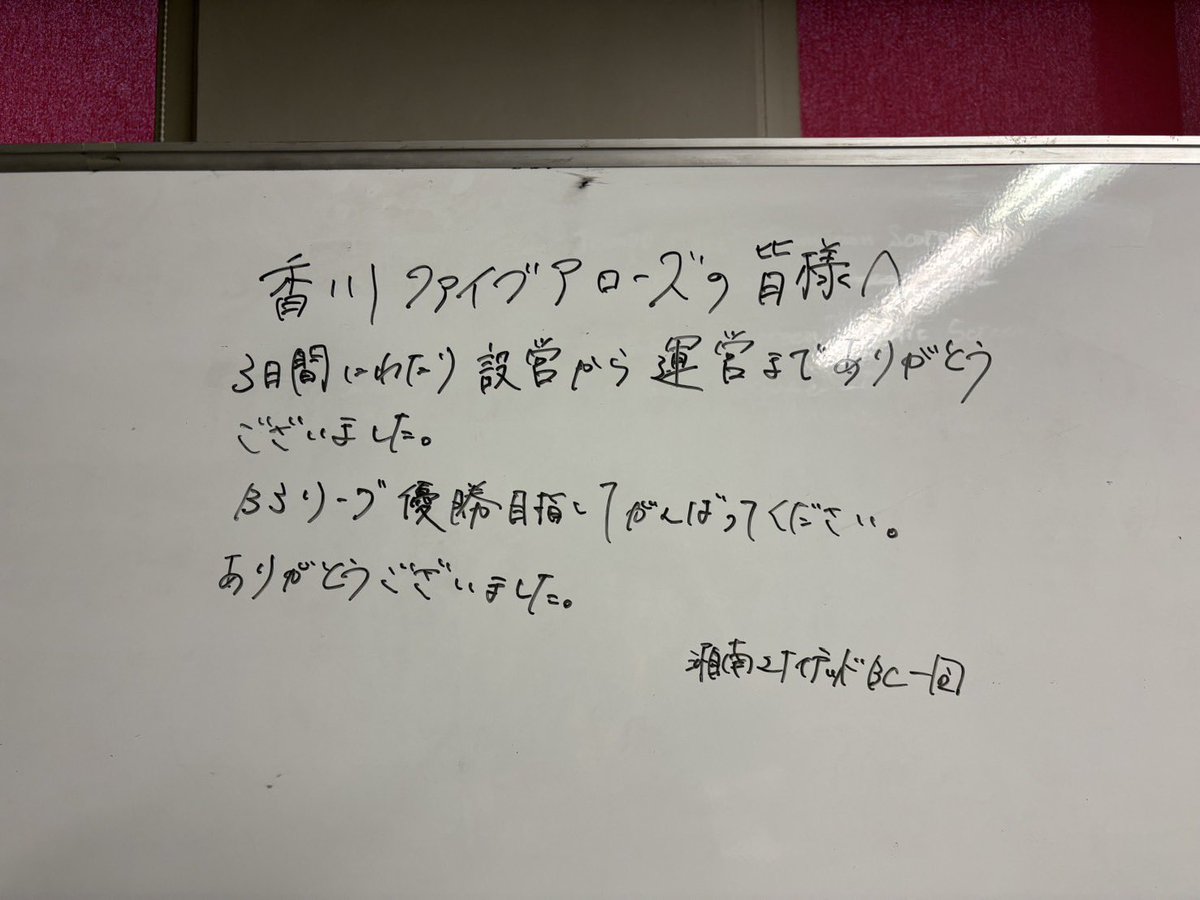 香川ファイブアローズの皆様へ
3日間にわたり設営から運営までありがとう
ございました。
B3リーグ優勝目指してがんばってください。
ありがとうございました。
湘南ユナイテッドBC一同